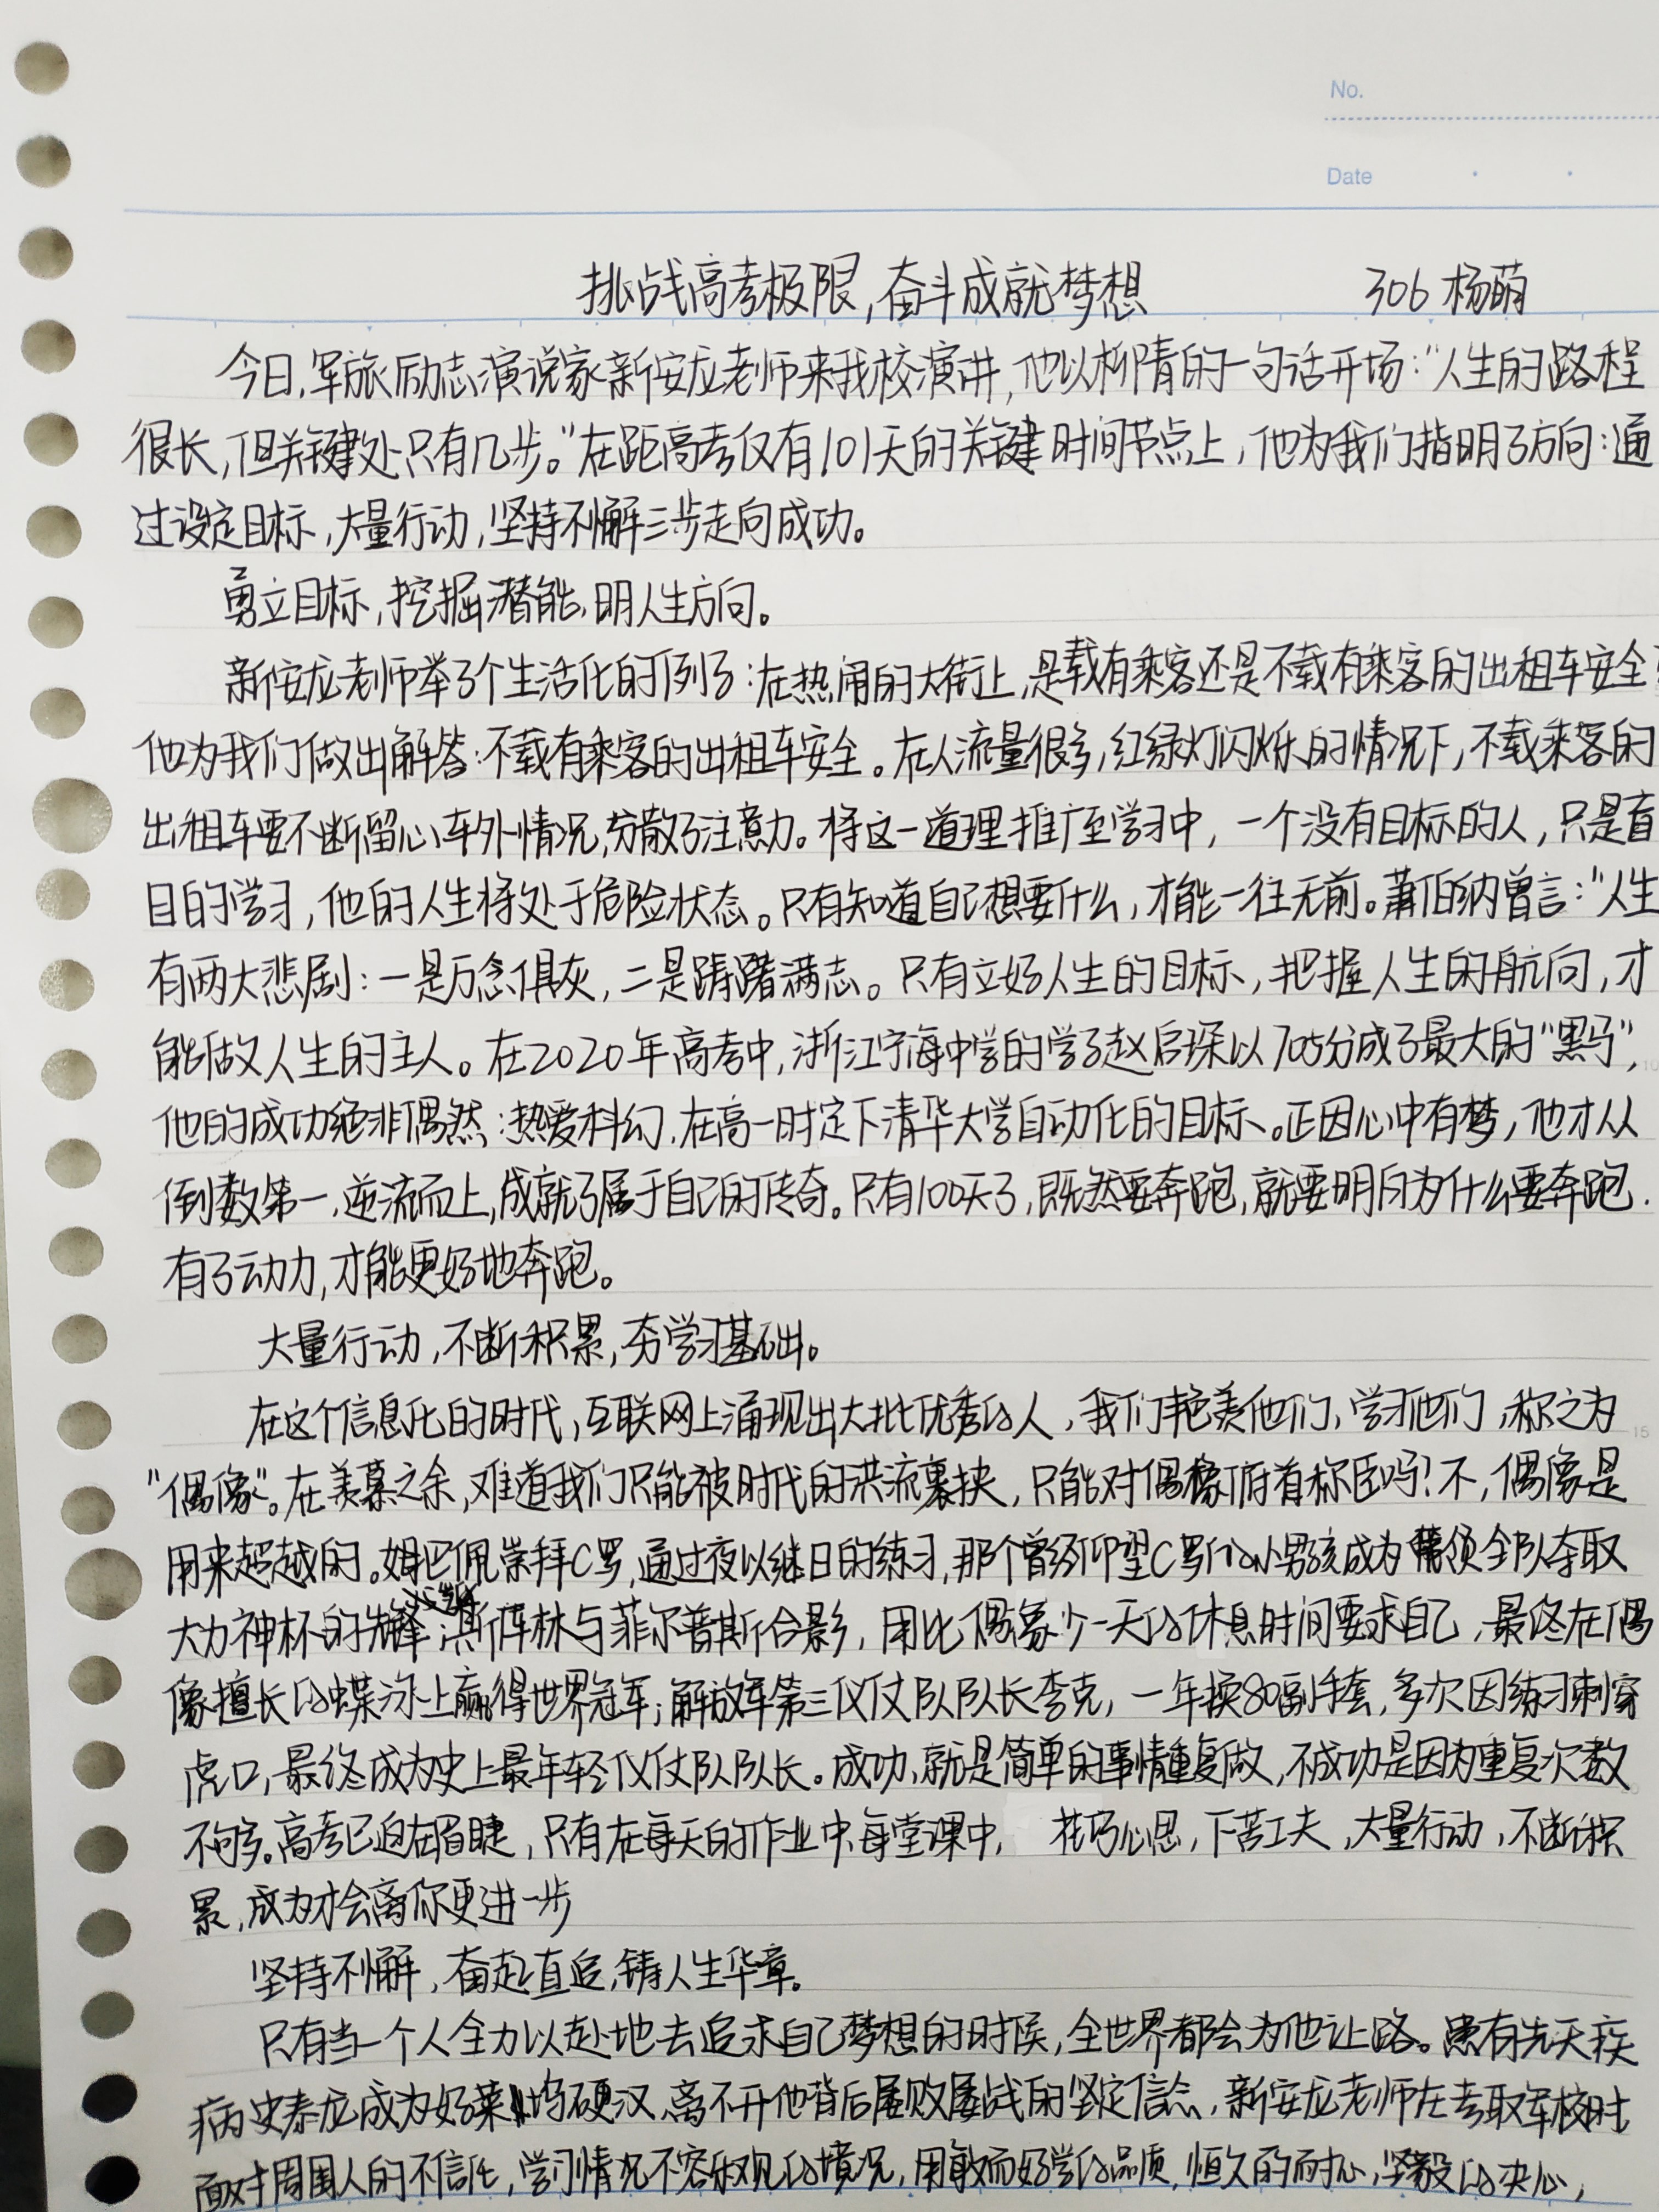 No.
Date
挑战高考极限,奋斗成就梦想 306 杨萌
今日,军旅励志演说家新安龙老师来我校演讲,他以柳青的一句话开场:"人生的路程
很长,但关键处只有几步。"在距高考仅有101天的关键时间节点上,他为我们指明了方向:通
过设定目标,大量行动,坚持不懈三步走向成功。
勇立目标,挖掘潜能,明人生方向。
新安龙老师举了个生活化的例子:在热闹的大街上,是载有乘客还是不载有乘客的出租车安全
他为我们做出解答:不载有乘客的出租车安全。在人流量很多,红绿灯闪烁的情况下,不载乘客的
出租车要不断留心车外情况,分散了注意力。将这一道理推广至学习中,一个没有目标的人,只是盲
目的学习,他的人生将处于危险状态。只有知道自己想要什么,才能一往无前。萧伯纳曾言:"人生
有两大悲剧:一是万念俱灰,二是踌躇满志。只有立好人生的目标,把握人生的航向,才
能做人生的主人。在2020年高考中,浙江宁海中学的学子赵启琛以705分成了最大的"黑马",
他的成功绝非偶然:热爱科幻,在高一时定下清华大学自动化的目标。正因心中有梦,他才从
倒数第一,逆流而上,成就了属于自己的传奇。只有100天了,既然要奔跑,就要明白为什么要奔跑.
有了动力,才能更好地奔跑。
大量行动,不断积累,夯学习基础。
在这个信息化的时代,互联网上涌现出大批优秀的人,我们艳羡他们,学习他们,称之为
"偶像"。在羡慕之余,难道我们只能被时代的洪流裹挟,只能对偶像俯首称臣吗?不,偶像是
用来超越的。姆巴佩崇拜C罗,通过夜以继日的练习,那个曾经仰望C罗的小男孩成为带领全队夺取
大力神杯的先锋;斯库林与菲尔普斯合影,用比偶像少一天的休息时间要求自己,最终在偶
像擅长的蝶泳上赢得世界冠军;解放军第三仪仗队队长李克,一年换80副手套,多次因练习刺穿
虎口,最终成为史上最年轻仪仗队队长。成功,就是简单的事情重复做,不成功是因为重复次数
不够多。高考已迫在眉睫,只有在每天的作业中,每堂课中, 花巧心思,下苦工夫,大量行动,不断积
累,成为才会离你更进一步
坚持不懈,奋起直追,铸人生华章。
只有当一个人全力以赴地去追求自己梦想的时候,全世界都会为他让路。患有先天疾
病史泰龙成为好莱坞硬汉,离不开他背后屡败屡战的坚定信念,新安龙老师在考取军校时
面对周围人的不信任,学习情况不容乐观的境况,用敏而好学的品质,恒久的耐心,坚毅的决心,